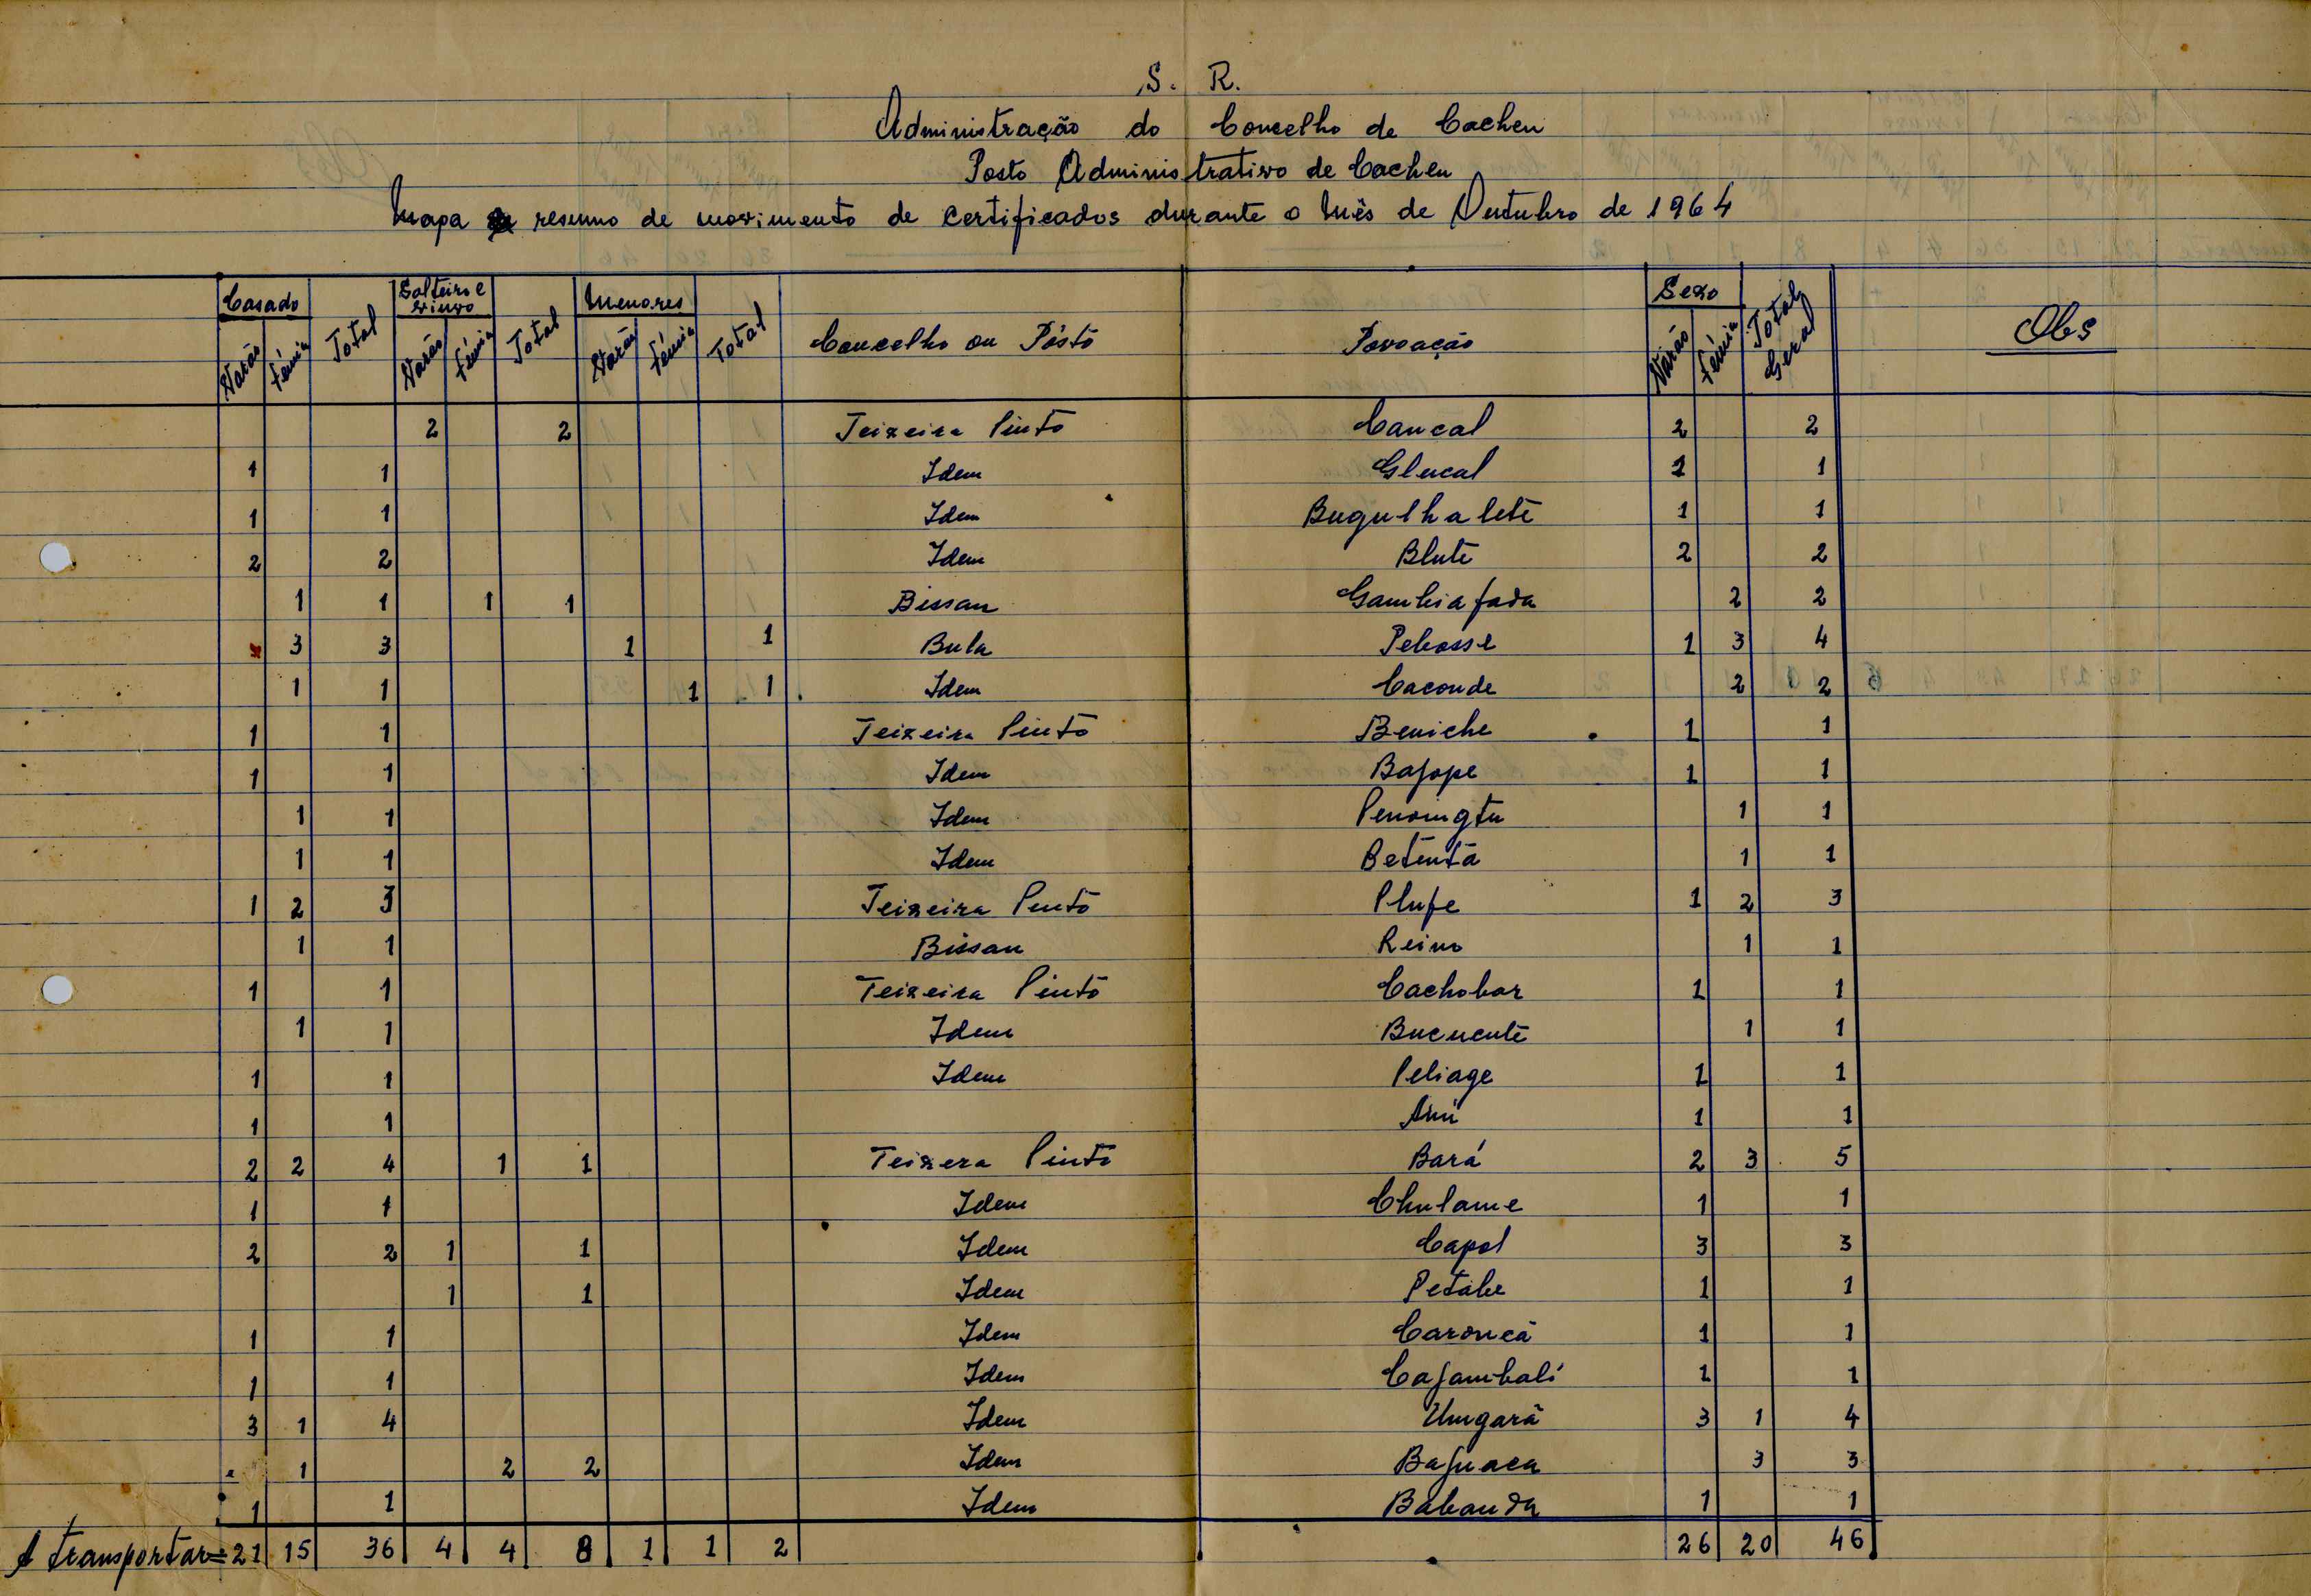 S. R.
Administração do Concelho de Cacheu
Posto Administrativo de Cacheu
Mapa resumo de movimento de certificados durante o Mês de Outubro de 1964
Casado Total Solteiro e viuvo Total Menores Total Concelho ou Pôsto Povoação Sexo Total Geral Obs
Varão Fémia Varão Fémia Varão Fémia Varão Fémia
2 2 Teixeira Pinto Cancal 2 2
1 1 Idem Glucal 1 1
1 1 Idem Bugulhalete 1 1
2 2 Idem Blute 2 2
1 1 1 1 Bissau Gambiafada 2 2
3 3 1 1 Bula Pebosse 1 3 4
1 1 1 1 Idem Caconde 2 2
1 1 Teixeira Pinto Beniche 1 1
1 1 Idem Bajope 1 1
1 1 Idem 1 1
1 1 Idem Betenta 1 1
1 2 3 Teixeira Pinto Plufe 1 2 3
1 1 Bissau Reino 1 1
1 1 Teixeira Pinto Cachobar 1 1
1 1 Idem Bucucute 1 1
1 1 Idem Peliage 1 1
1 1 1 1
2 2 4 1 1 Teixera Pinto Bará 2 3 5
1 1 Idem Chulame 1 1
2 2 1 1 Idem Capol 3 3
1 1 Idem Petabe 1 1
1 1 Idem Caroncá 1 1
1 1 Idem Cajambali 1 1
3 1 4 Idem Ungará 3 1 4
1 2 2 Idem Bajuaca 3 3
1 1 Idem Babanda 1 1
A transportar= 21 15 36 4 4 8 1 1 2 26 20 46